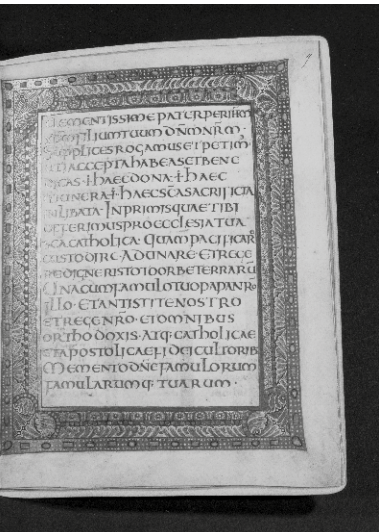 CLEMENTISSIME PATER PER IHM
FILIUM TUUM DNM NRM·
SUPPLICES ROGAMUS ET PETIM
ACCEPTA HABEAS ET BENE
DICAS · HAEC DONA · HAEC
MUNERA · HAEC SCA SACRIFICIA
INLIBATA · IN PRIMIS QUAE TIBI
OFFERIMUS PRO ECCLESIA TUA
SCA CATHOLICA· QUAM PACIFICAR
CUSTODIRE· ADUNARE· ET REGE
RE DIGNERIS TOTO ORBE TERRARU
UNA CUM FAMULO TUO PAPA NRO
ILLO · ET ANTISTITE NOSTRO
ET REGE NRO· ET OMNIBUS
ORTHODOXIS· ATQ· CATHOLICAE
ET APOSTOLICAE FIDEI CULTORIB
MEMENTO DNE FAMULORUM
FAMULARUMQ· TUARUM·